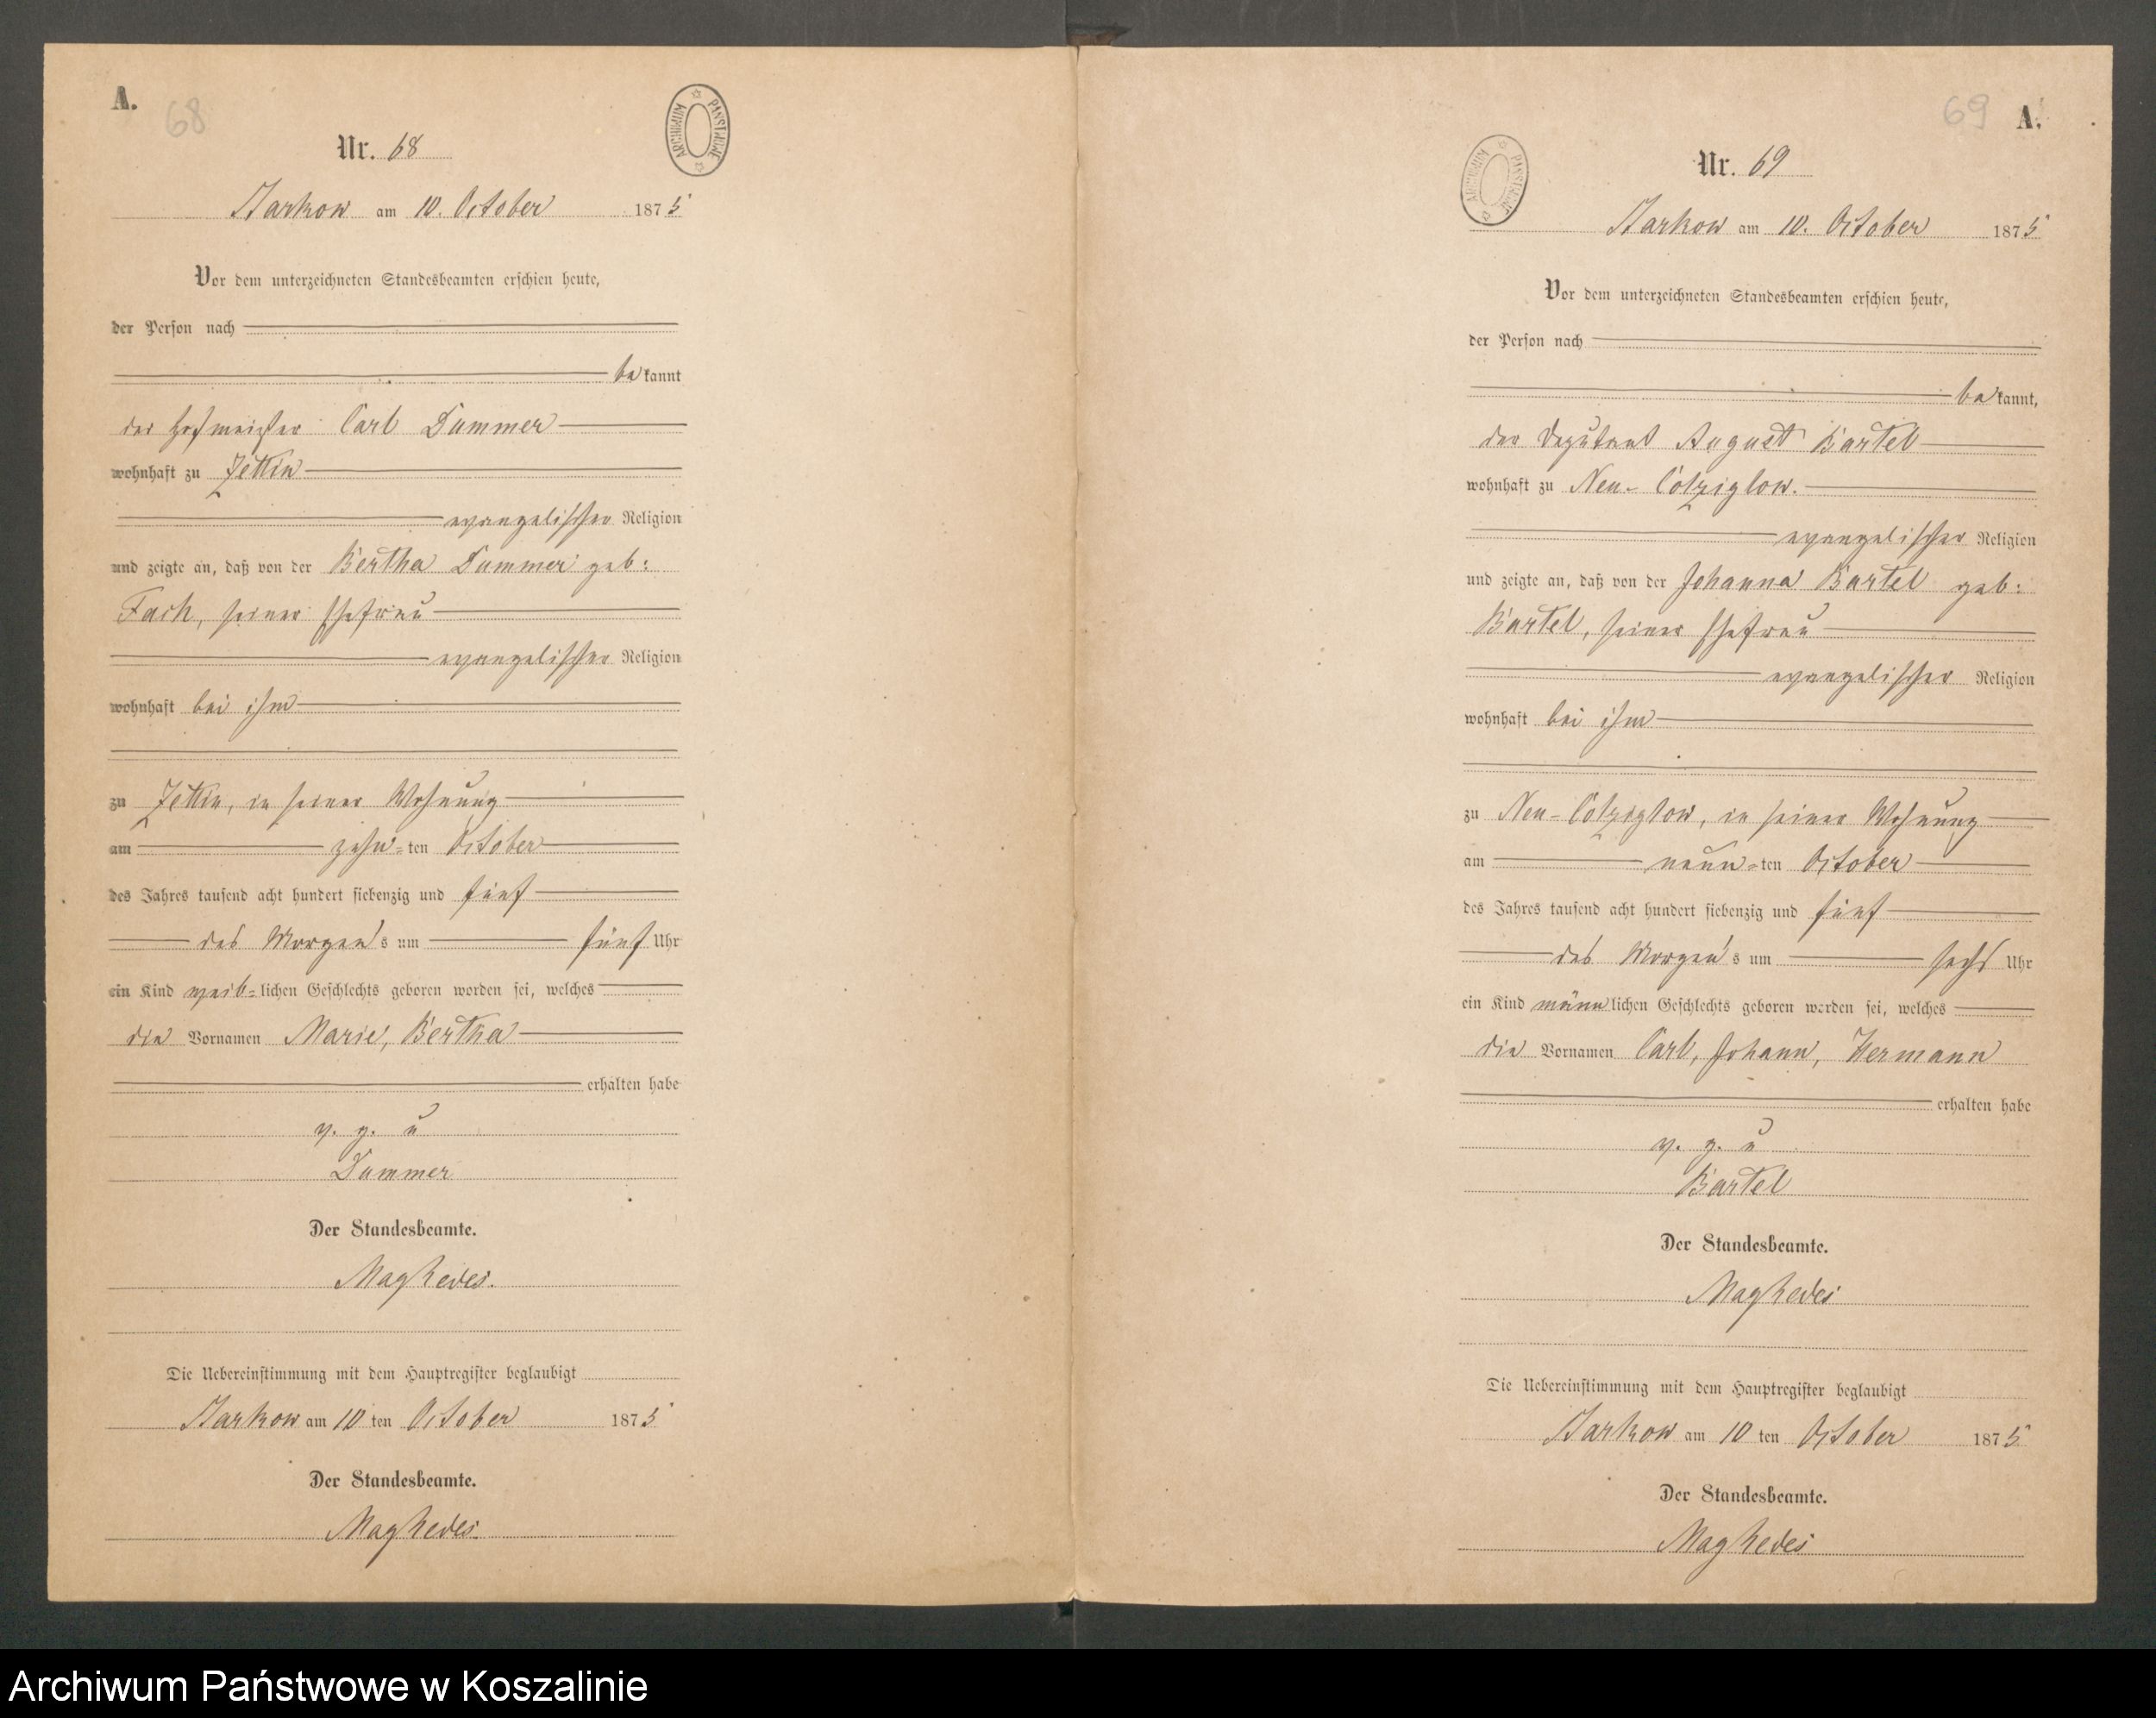 A.
68
Nr. 68
ARCHIWUM PAŃSTWOWE
Starkow am 10. October 1875
Vor dem unterzeichneten Standesbeamten erschien heute,
der Person nach
bekannt
der Hofmeister Carl Dummer
wohnhaft zu Zettin
evangelischer Religion
und zeigte an, daß von der Bertha Dummer geb:
Fach, seiner Ehefrau
evangelischer Religion
wohnhaft bei ihm
zu Zettin, in seiner Wohnung
am zehn=ten October
des Jahres tausend acht hundert siebenzig und fünf
des Morgens um fünf Uhr
ein Kind weib=lichen Geschlechts geboren worden sei, welches
die Vornamen Marie, Bertha
erhalten habe
v. g. u
Dummer
Der Standesbeamte.
Die Uebereinstimmung mit dem Hauptregister beglaubigt
Starkow am 10 ten October 1875
Der Standesbeamte.
69
A.
Nr. 69
ARCHIWUM PAŃSTWOWE
Starkow am 10. October 1875
Vor dem unterzeichneten Standesbeamten erschien heute,
der Person nach
bekannt,
der Deputant August Bartel
wohnhaft zu Neu-Colziglow.
evangelischer Religion
und zeigte an, daß von der Johanna Bartel geb:
Bartel, seiner Ehefrau
evangelischer Religion
wohnhaft bei ihm
zu Neu-Colziglow, in seiner Wohnung
am neun=ten October
des Jahres tausend acht hundert siebenzig und fünf
des Morgens um sechs Uhr
ein Kind männlichen Geschlechts geboren worden sei, welches
die Vornamen Carl, Johann, Hermann
erhalten habe
v. g. u
Bartel
Der Standesbeamte.
Die Uebereinstimmung mit dem Hauptregister beglaubigt
Starkow am 10 ten October 1875
Der Standesbeamte.
Archiwum Państwowe w Koszalinie